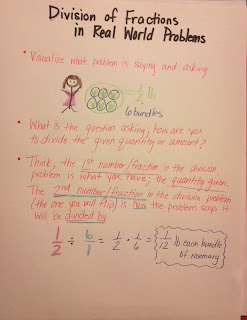 Division of Fractions
in Real World Problems
• Visualize what problem is saying and asking
1/2 lb
6 bundles
• What is the question asking; how are you
to divide the given quantity or amount?
• Think, the 1st number/fraction in the division
problem is what you have; the quantity given.
The 2nd number/fraction in the division problem
(the one you will flip) is how the problem says it
will be divided by
1/2 ÷ 6/1 = 1/2 · 1/6 = 1/12 lb each bundle
of rosemary